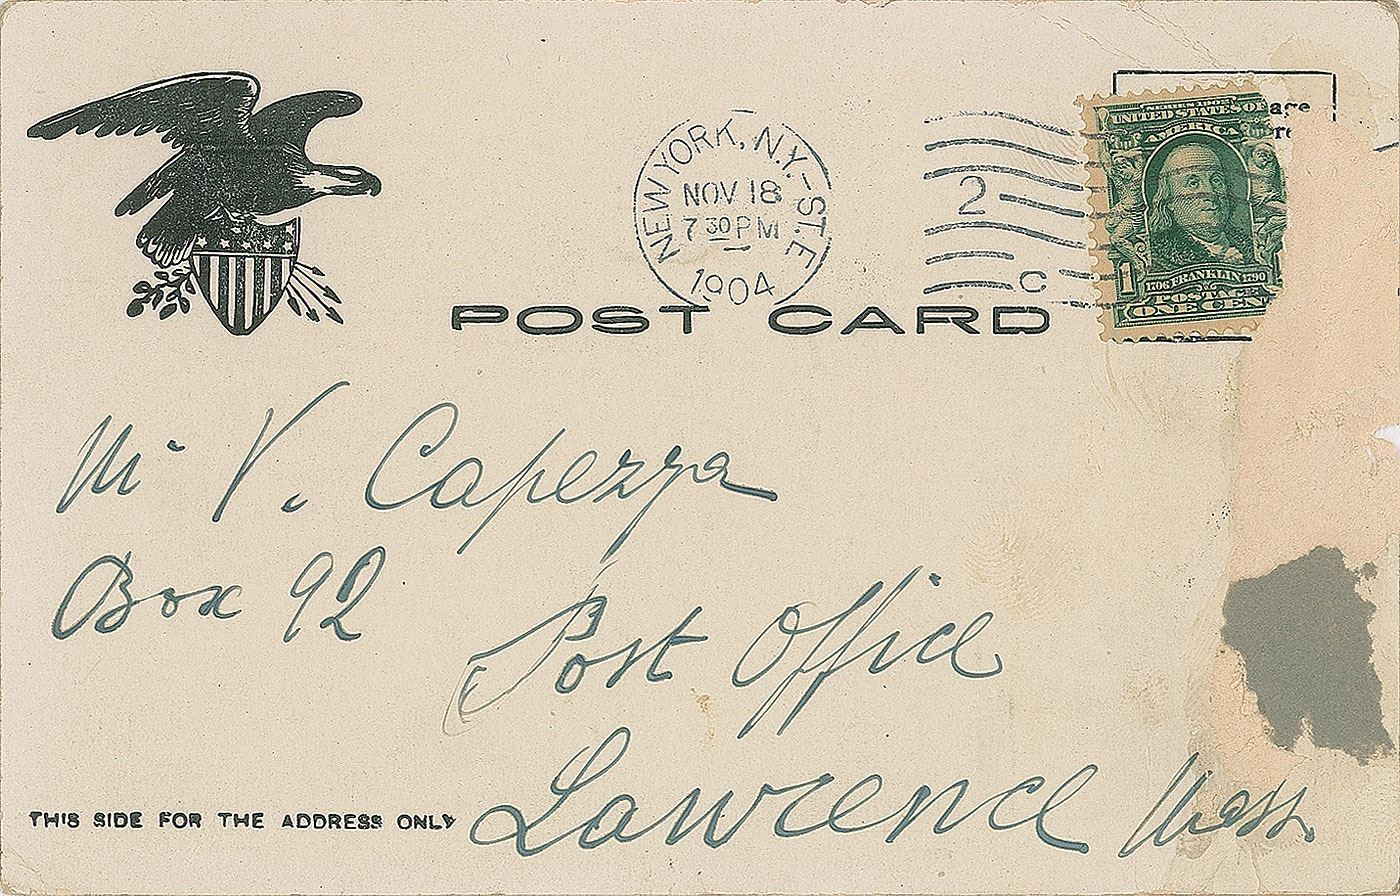 age
re
SERIES 1902
UNITED STATES OF
AMERICA
1
1706 FRANKLIN 1790
POSTAGE
ONE CEN
NEW YORK, N.Y.-ST. E
NOV 18
7 30 PM
1904
2
C
POST CARD
Mr V. Capezza
Box 92
Post Office
Lawrence Mass.
THIS SIDE FOR THE ADDRESS ONLY